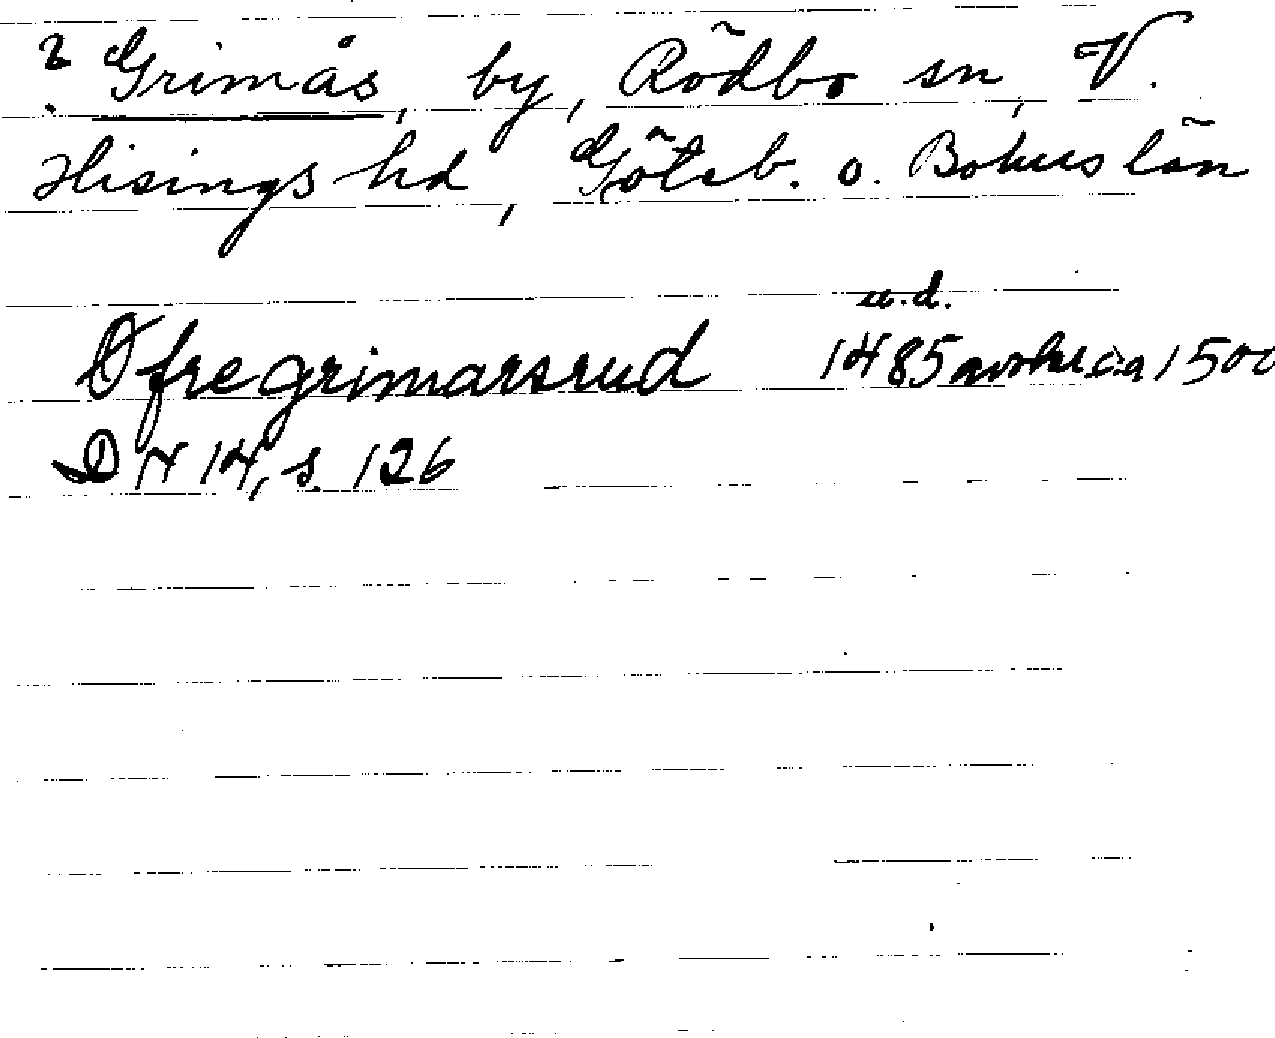 ? Grimås, by, Rödbo sn, V.
Hisings hd, Göteb. o. Bohus län
u.d.
Øfregrimarsrud 1485 avskr. ca 1500
DN 14, s. 126